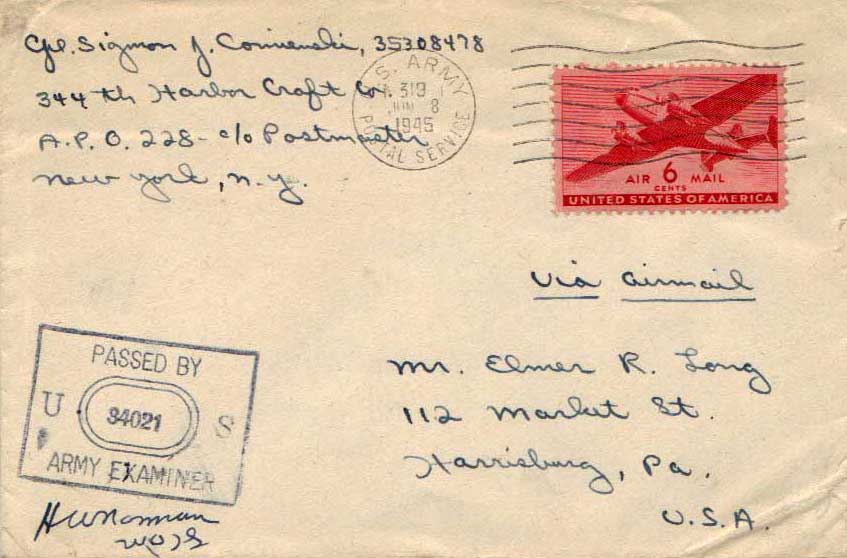 Cpl. Sigmon J. Comienski, 35308478
344th Harbor Craft Co.
A.P.O. 228 - c/o Postmaster
New York, N.Y.
U.S. ARMY
319
JUN 8
1945
POSTAL SERVICE
AIR 6 MAIL
CENTS
UNITED STATES OF AMERICA
Via Airmail
PASSED BY
U 34021 S
ARMY EXAMINER
Mr. Elmer R. Long
112 Market St.
Harrisburg, Pa.
U.S.A.